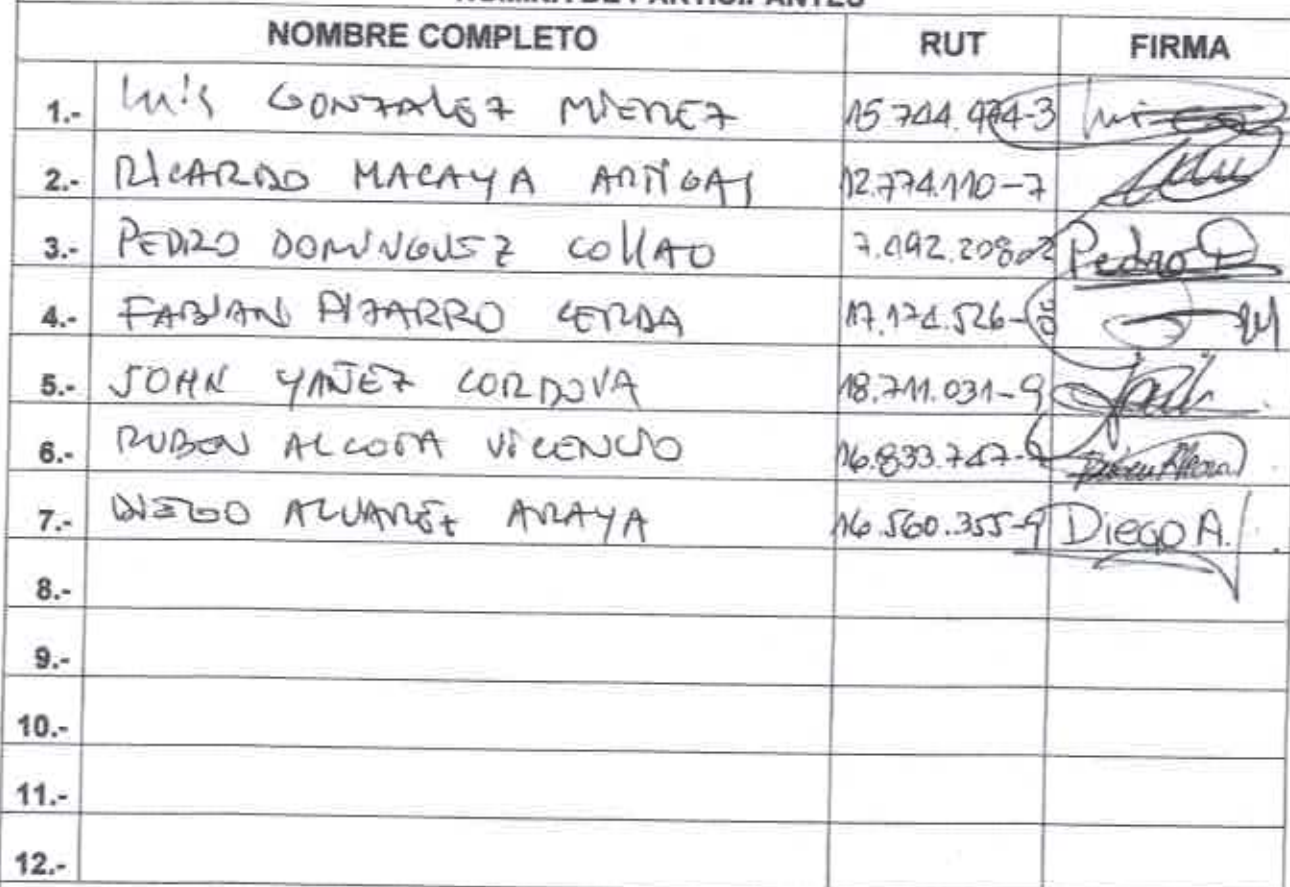 NOMINA DE PARTICIPANTES
NOMBRE COMPLETO RUT FIRMA
1.- Luis GONZALEZ MIEREZ 15.744.974-3 Luis
2.- RICARDO MACAYA ARTIGAS 12.774.110-7
3.- PEDRO DOMINGUEZ COLLAO 7.492.208-2 Pedro D
4.- FABIAN PIZARRO CERDA 17.174.526-
5.- JOHN YAÑEZ CORDOVA 18.711.031-9
6.- RUBEN ALCOTA VICENCIO 16.833.747- Ruben Alcota
7.- DIEGO ALVAREZ ARAYA 16.560.355-9 Diego A.
8.-
9.-
10.-
11.-
12.-